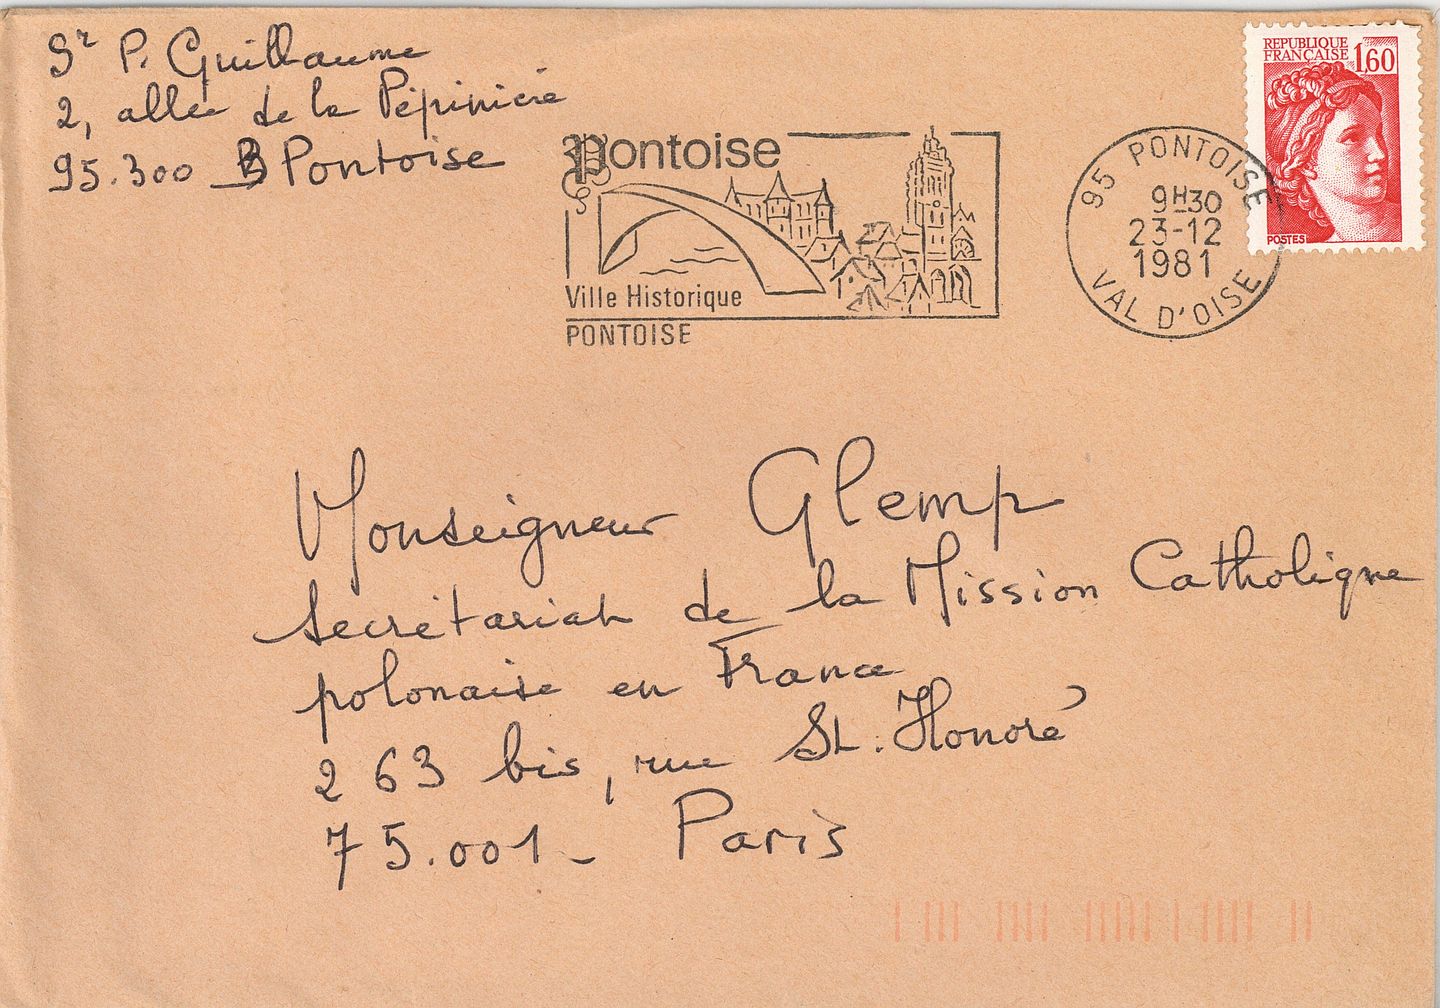 Sr P. Guillaume
2, allée de la Pépinière
95.300 Pontoise
Pontoise
Ville Historique
PONTOISE
95 PONTOISE
9H30
23-12
1981
VAL D'OISE
REPUBLIQUE
FRANÇAISE 1,60
POSTES
Monseigneur Glemp
secrétariat de la Mission Catholique
polonaise en France
263 bis, rue St. Honoré
75.001 - Paris